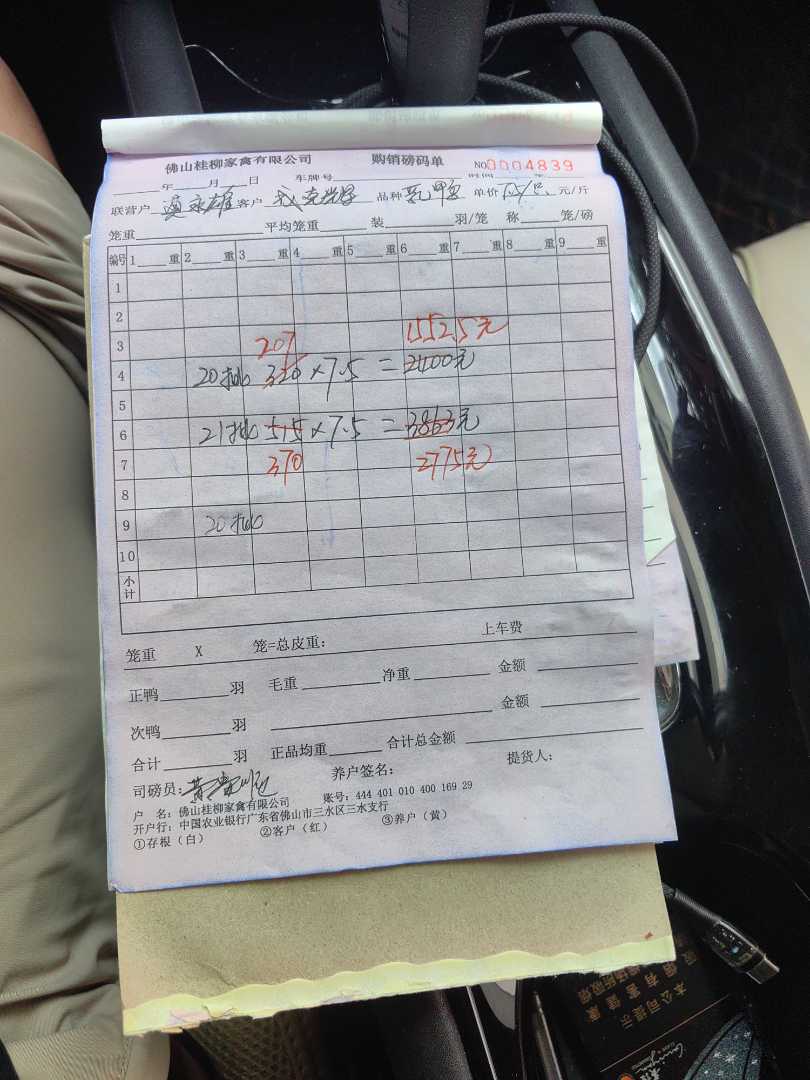 佛山桂柳家禽有限公司 购销磅码单 NO 0004839
年 月 日 车牌号 时间
联营户 永雄 客户 品种 乳鸭 单价 元/斤
笼重 平均笼重 装 羽/笼 称 笼/磅
编号 1 重 2 重 3 重 4 重 5 重 6 重 7 重 8 重 9 重
1
2
3 207 1552.5元
4 20批 320 × 7.5 = 2400元
5
6 21批 515 × 7.5 = 3863元
7 370 2775元
8
9 20批
10
小计
笼重 X 笼=总皮重: 上车费
正鸭 羽 毛重 净重 金额
次鸭 羽 金额
合计 羽 正品均重 合计总金额
司磅员: 养户签名: 提货人:
户 名: 佛山桂柳家禽有限公司 账号: 444 401 010 400 169 29
开户行: 中国农业银行广东省佛山市三水区三水支行
①存根（白） ②客户（红） ③养户（黄）
本公司提示